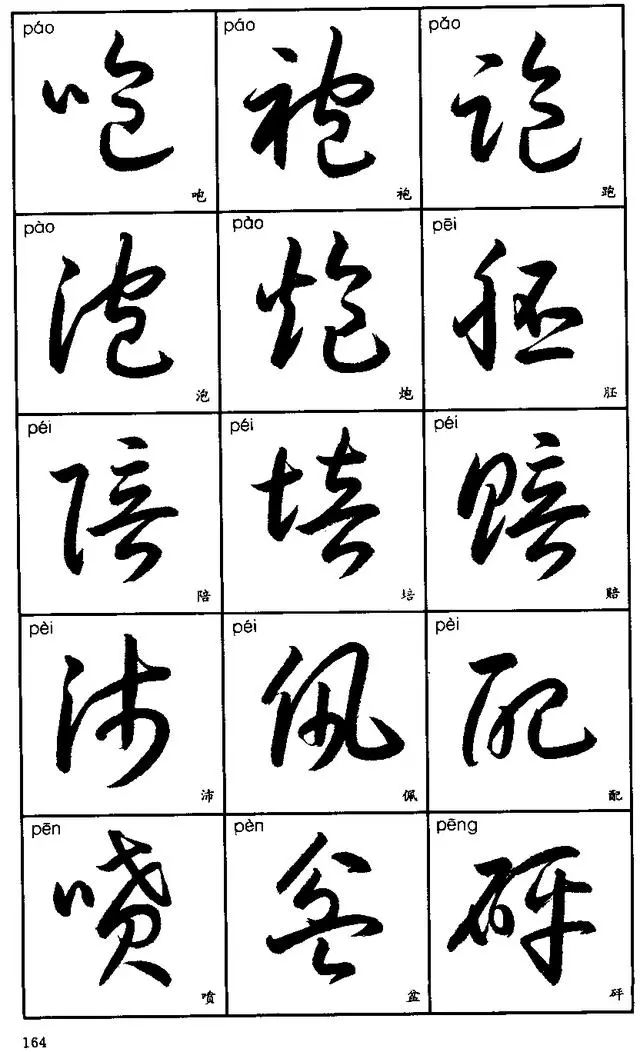 páo páo pǎo
咆 袍 跑
咆 袍 跑
pào pào pēi
泡 炮 胚
泡 炮 胚
péi péi péi
陪 培 赔
陪 培 赔
pèi péi pèi
沛 佩 配
沛 佩 配
pēn pèn pēng
喷 盆 砰
喷 盆 砰
164